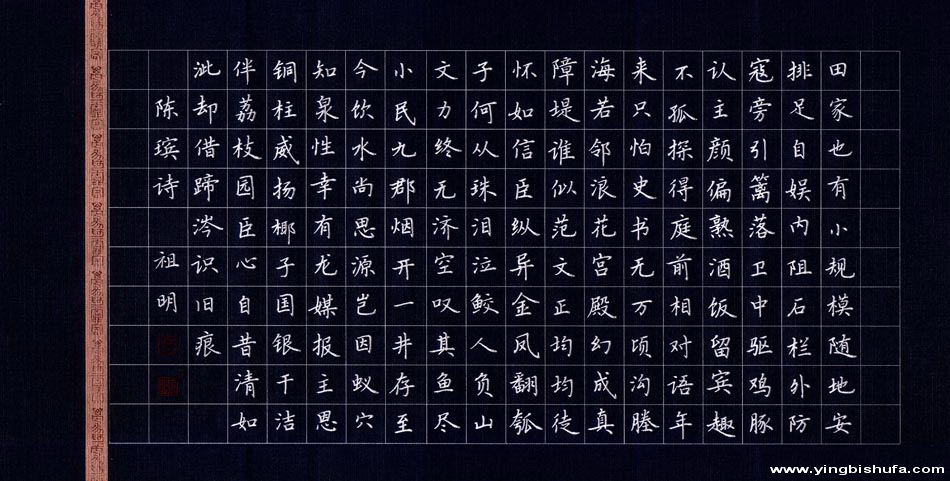 田家也有小规模随地安
排足自娱内阻石栏外防
寇旁引篱落卫中驱鸡豚
认主颜偏熟酒饭留宾趣
不孤探得庭前相对语年
来只怕史书无万顷沟塍
海若邻浪花宫殿幻成真
障堤谁似范文正均均徒
怀如信臣纵异金凤翻瓠
子何从珠泪泣鲛人负山
文力终无济空叹其鱼尽
小民九郡烟开一井存至
今饮水尚思源岂因蚁穴
知泉性幸有龙媒报主思
铜柱威扬椰子国银干洁
伴荔枝园臣心自昔清如
泚却借蹄涔识旧痕
陈瑸诗 祖明
www.yingbishufa.com